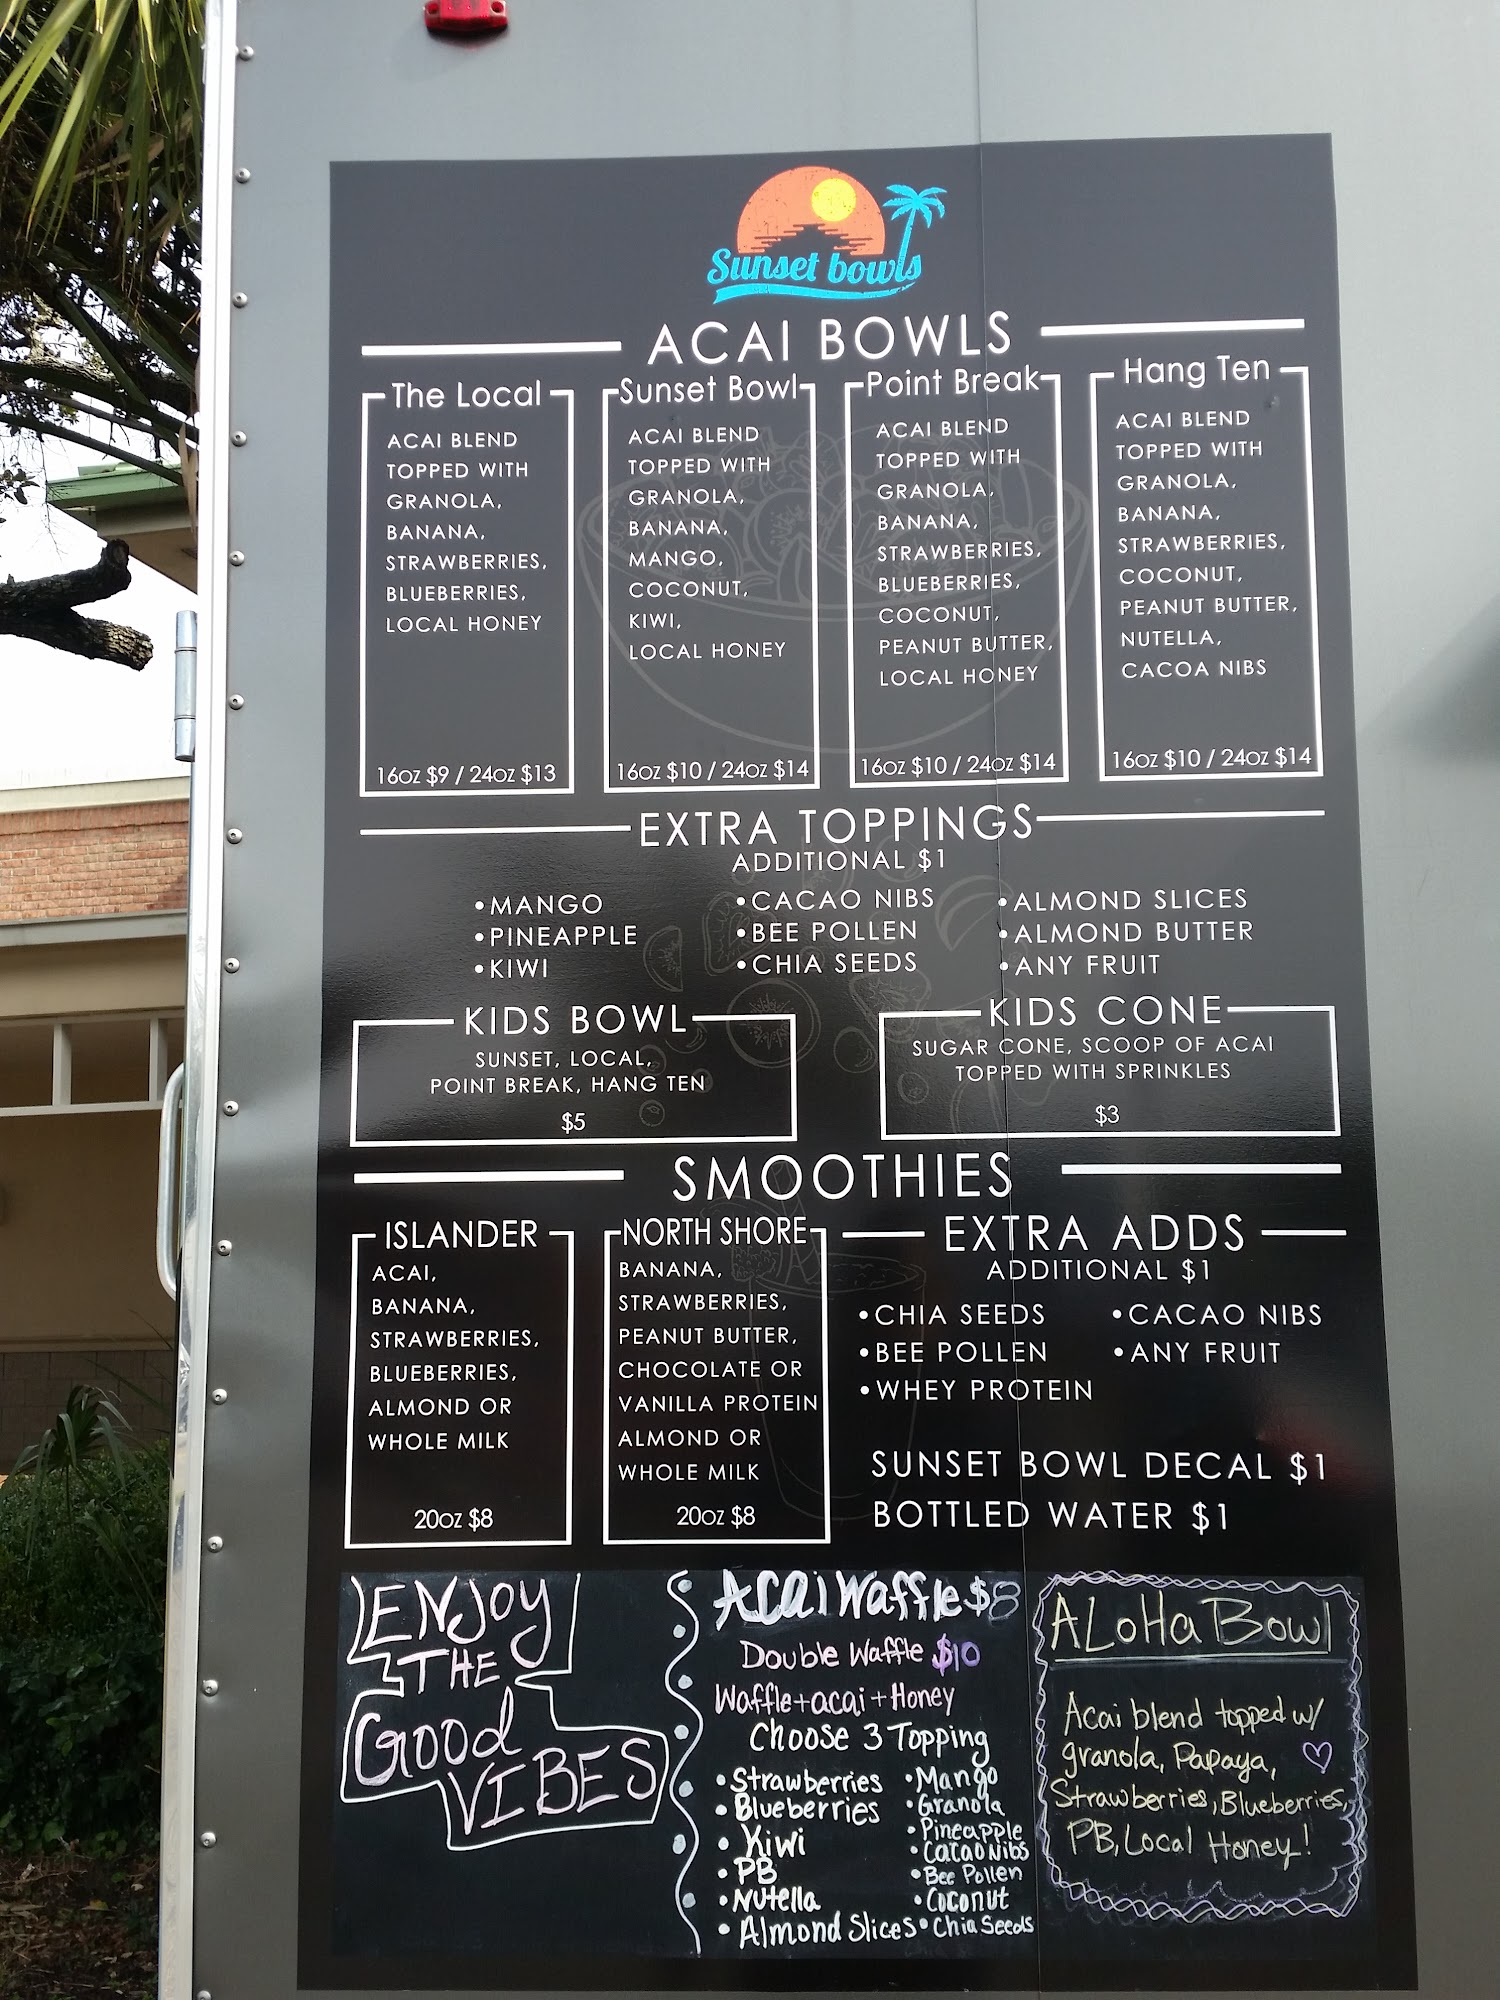 Sunset bowls
ACAI BOWLS
The Local
ACAI BLEND
TOPPED WITH
GRANOLA,
BANANA,
STRAWBERRIES,
BLUEBERRIES,
LOCAL HONEY
16oz $9 / 24oz $13
Sunset Bowl
ACAI BLEND
TOPPED WITH
GRANOLA,
BANANA,
MANGO,
COCONUT,
KIWI,
LOCAL HONEY
16oz $10 / 24oz $14
Point Break
ACAI BLEND
TOPPED WITH
GRANOLA,
BANANA,
STRAWBERRIES,
BLUEBERRIES,
COCONUT,
PEANUT BUTTER,
LOCAL HONEY
16oz $10 / 24oz $14
Hang Ten
ACAI BLEND
TOPPED WITH
GRANOLA,
BANANA,
STRAWBERRIES,
COCONUT,
PEANUT BUTTER,
NUTELLA,
CACOA NIBS
16oz $10 / 24oz $14
EXTRA TOPPINGS
ADDITIONAL $1
•MANGO
•PINEAPPLE
•KIWI
•CACAO NIBS
•BEE POLLEN
•CHIA SEEDS
•ALMOND SLICES
•ALMOND BUTTER
•ANY FRUIT
KIDS BOWL
SUNSET, LOCAL,
POINT BREAK, HANG TEN
$5
KIDS CONE
SUGAR CONE, SCOOP OF ACAI
TOPPED WITH SPRINKLES
$3
SMOOTHIES
ISLANDER
ACAI,
BANANA,
STRAWBERRIES,
BLUEBERRIES,
ALMOND OR
WHOLE MILK
20oz $8
NORTH SHORE
BANANA,
STRAWBERRIES,
PEANUT BUTTER,
CHOCOLATE OR
VANILLA PROTEIN
ALMOND OR
WHOLE MILK
20oz $8
EXTRA ADDS
ADDITIONAL $1
•CHIA SEEDS
•BEE POLLEN
•WHEY PROTEIN
•CACAO NIBS
•ANY FRUIT
SUNSET BOWL DECAL $1
BOTTLED WATER $1
ENJOY
THE
GOOd
VIBES
ACAi Waffle $8
Double Waffle $10
Waffle+acai+Honey
Choose 3 Topping
•Strawberries
•Blueberries
•Kiwi
•PB
•Nutella
•Almond Slices
•Mango
•Granola
•Pineapple
•CacaoNibs
•Bee Pollen
•Coconut
•Chia Seeds
ALoHa Bowl
Acai blend topped w/
granola, Papaya,
Strawberries, Blueberries,
PB, Local Honey!